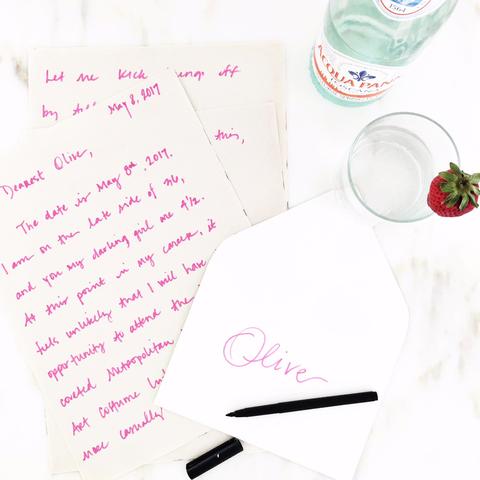 Let me kick things off
by
May 8, 2017
this,
Dearest Olive,
The date is May 8th, 2017.
I am on the late side of 36,
and you my darling girl are 4½.
At this point in my career, it
feels unlikely that I will have
opportunity to attend the
coveted Metropolitan
Art Costume
more casually
Olive
ACQUA PANNA
TOSCANA
1564